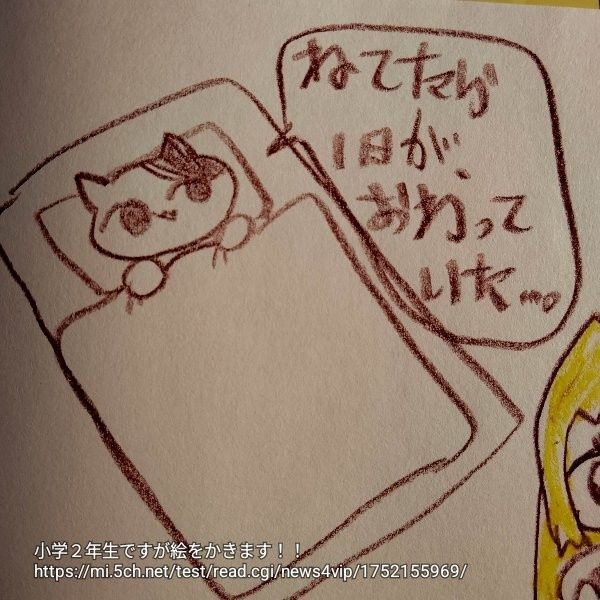 ねてたら
1日が、
おわって
いた…。
小学２年生ですが絵をかきます！！
https://mi.5ch.net/test/read.cgi/news4vip/1752155969/